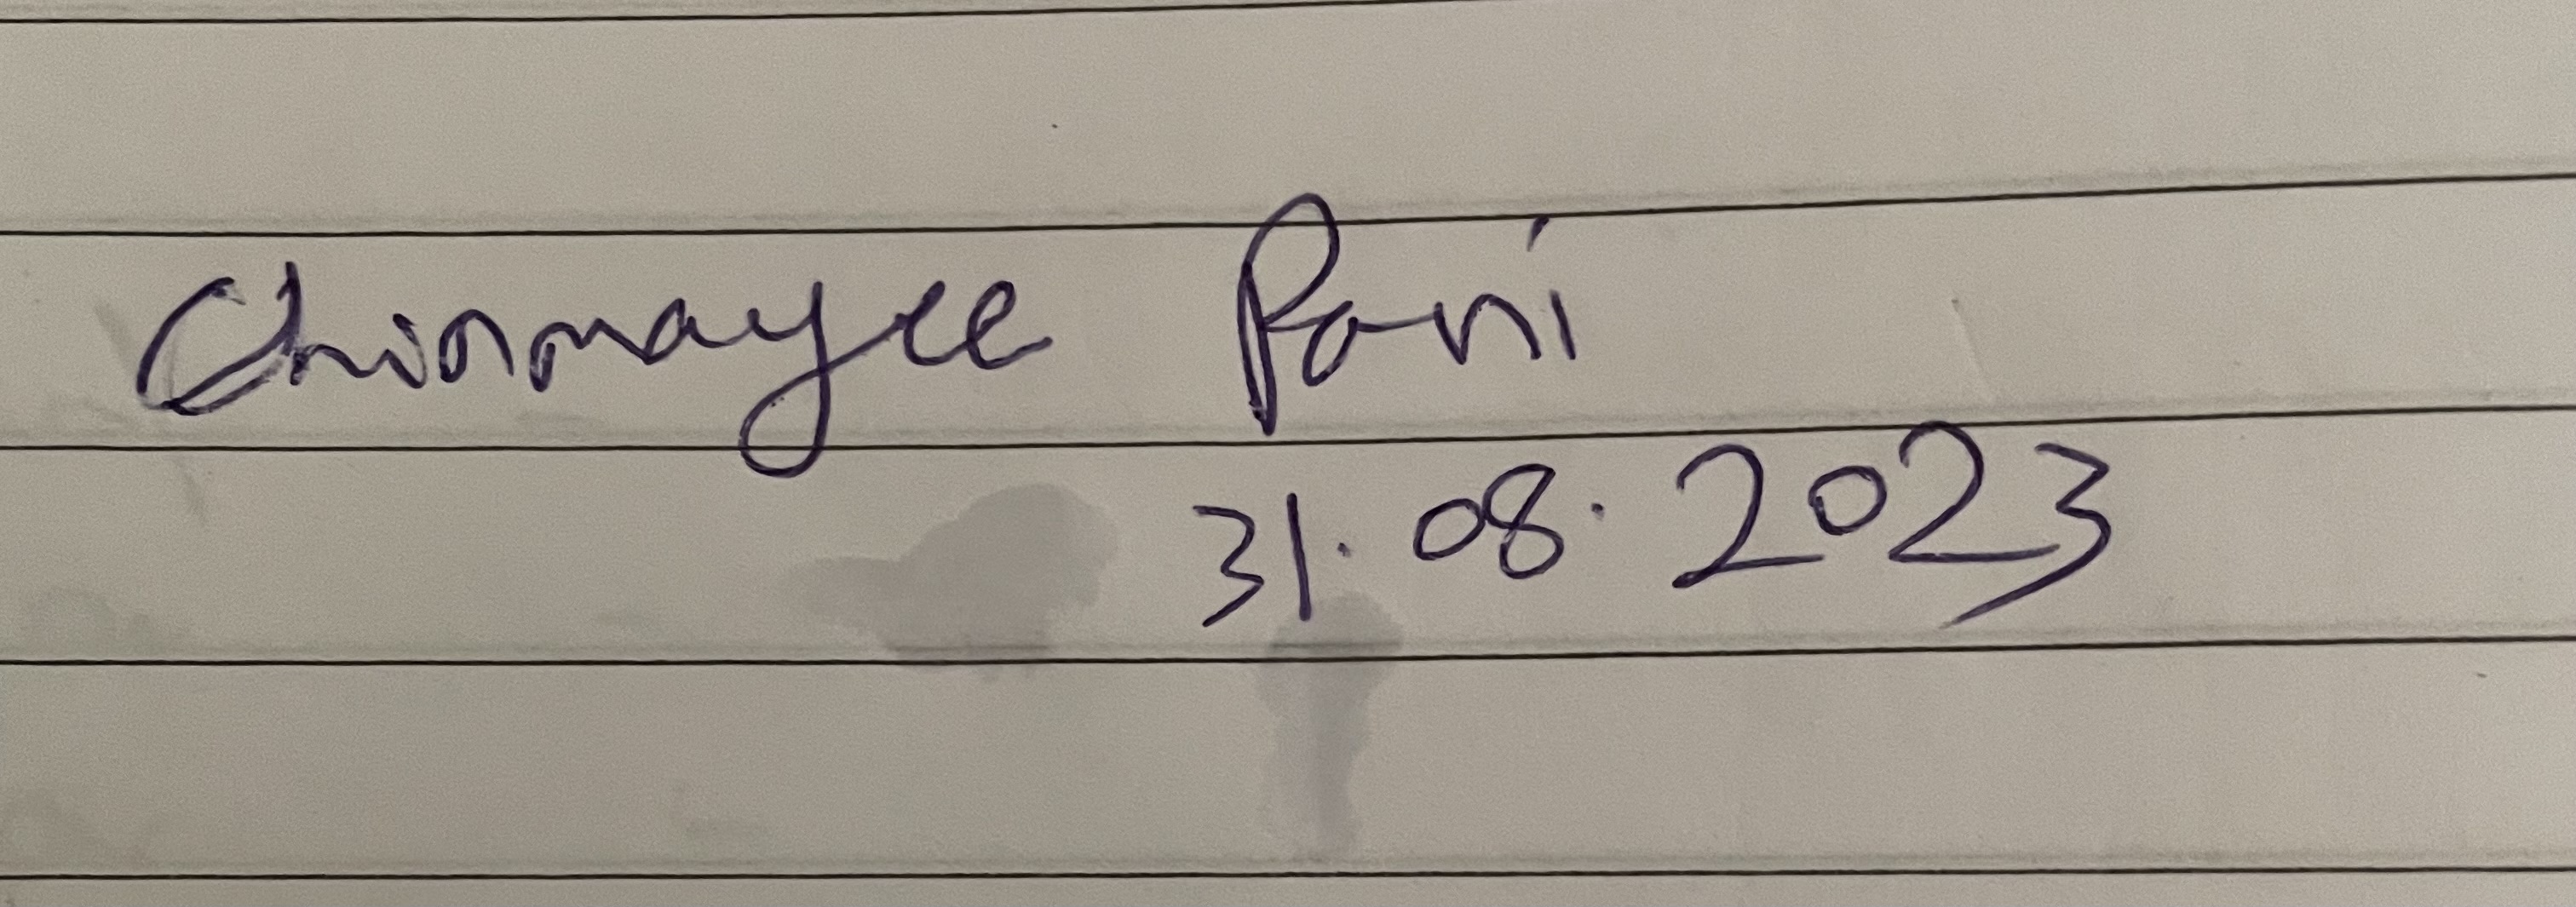 Chinmayee Pani
31.08.2023